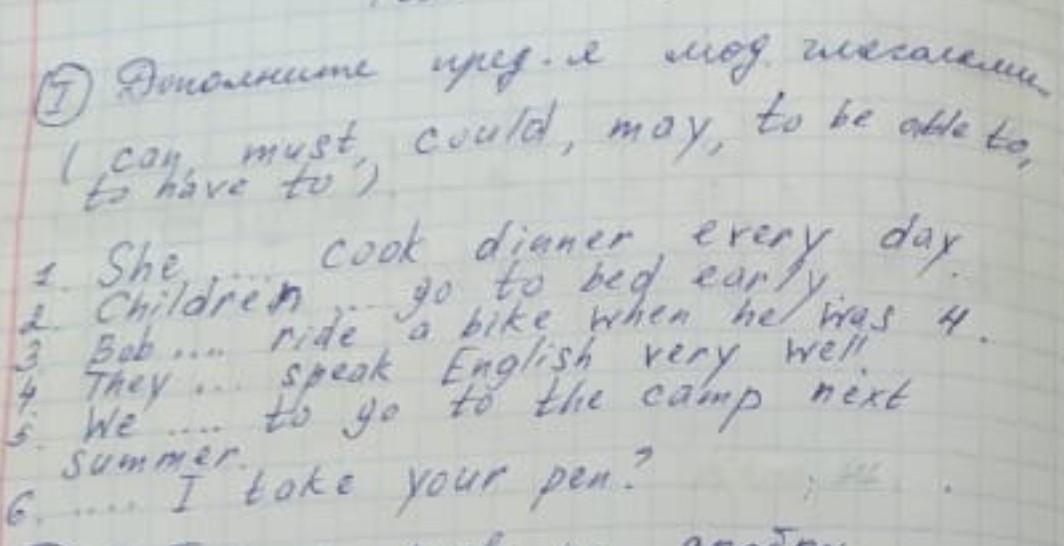 I Дополните пред-я мод. глаголами
( can, must, could, may, to be able to,
to have to ).
1. She .... cook dinner every day.
2. Children .... go to bed early.
3 Bob .... ride a bike when he was 4.
4 They .... speak English very well.
5. We .... to go to the camp next
summer.
6. .... I take your pen?